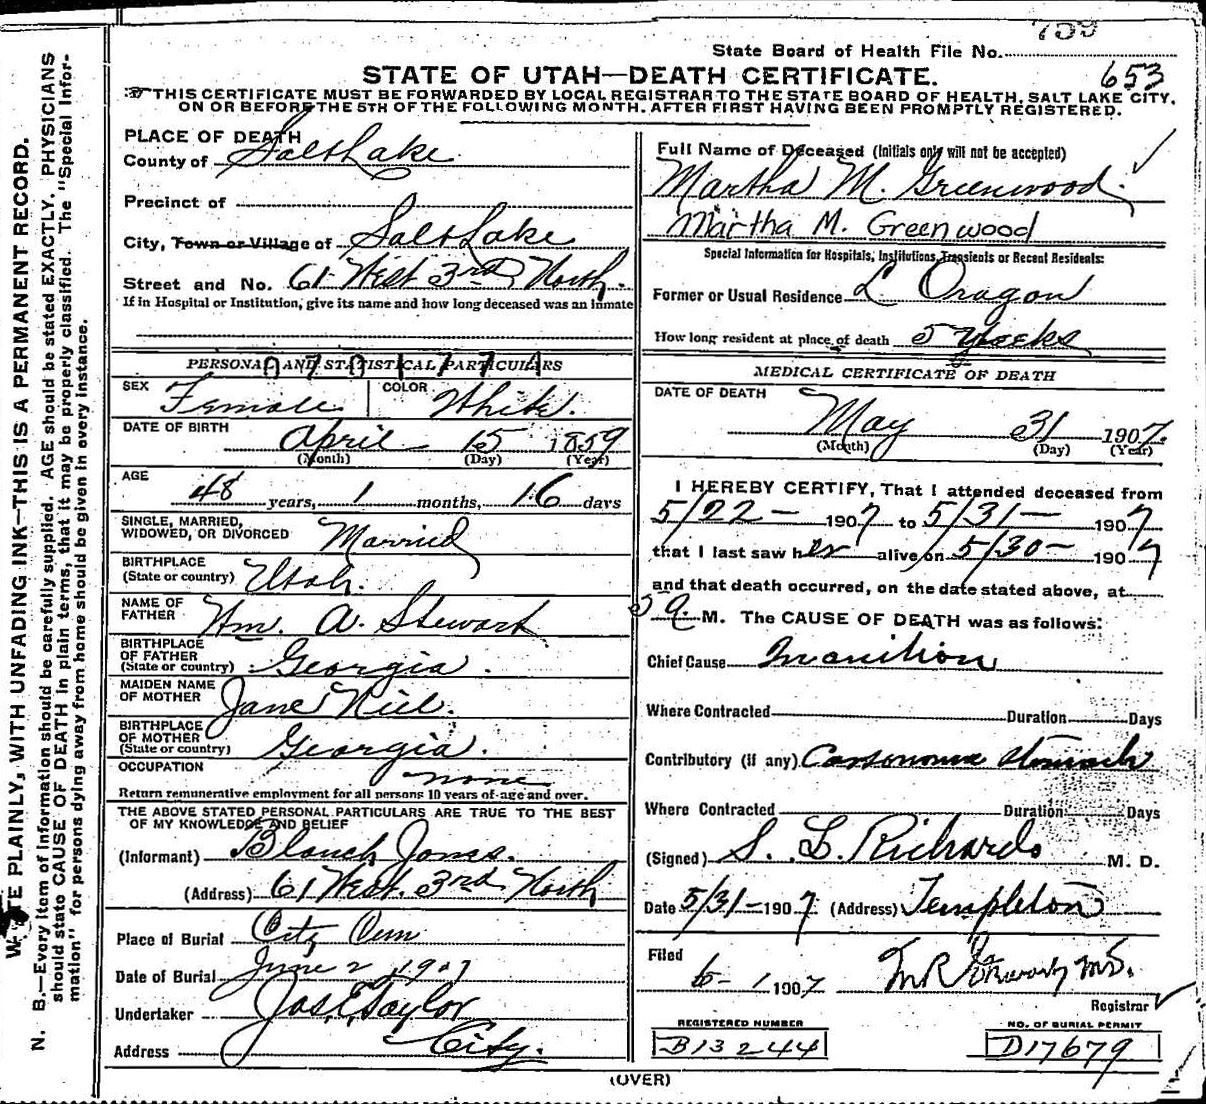 759
State Board of Health File No.
653
STATE OF UTAH—DEATH CERTIFICATE.
THIS CERTIFICATE MUST BE FORWARDED BY LOCAL REGISTRAR TO THE STATE BOARD OF HEALTH, SALT LAKE CITY,
ON OR BEFORE THE 5TH OF THE FOLLOWING MONTH, AFTER FIRST HAVING BEEN PROMPTLY REGISTERED.
WRITE PLAINLY, WITH UNFADING INK—THIS IS A PERMANENT RECORD.
N. B.—Every item of information should be carefully supplied. AGE should be stated EXACTLY. PHYSICIANS
should state CAUSE OF DEATH in plain terms, that it may be properly classified. The "Special Infor-
mation" for persons dying away from home should be given in every instance.
PLACE OF DEATH
County of Salt Lake
Precinct of
City, Town or Village of Salt Lake
Street and No. 61 West 3rd North.
If in Hospital or Institution, give its name and how long deceased was an inmate
PERSONAL AND STATISTICAL PARTICULARS
SEX Female COLOR White.
DATE OF BIRTH
April 15 1859
(Month) (Day) (Year)
AGE
48 years, 1 months, 16 days
SINGLE, MARRIED,
WIDOWED, OR DIVORCED Married
BIRTHPLACE
(State or country) Utah.
NAME OF
FATHER Wm. A. Stewart
BIRTHPLACE
OF FATHER
(State or country) Georgia.
MAIDEN NAME
OF MOTHER Jane Niel.
BIRTHPLACE
OF MOTHER
(State or country) Georgia.
OCCUPATION none
Return remunerative employment for all persons 10 years of age and over.
THE ABOVE STATED PERSONAL PARTICULARS ARE TRUE TO THE BEST
OF MY KNOWLEDGE AND BELIEF
(Informant) Blanch Jones.
(Address) 61 West. 3rd North
Place of Burial City Cem
Date of Burial June 2 1907
Undertaker Jos. E. Taylor
Address City.
Full Name of Deceased (Initials only will not be accepted)
Martha M. Greenwood.
Martha M. Greenwood
Special Information for Hospitals, Institutions, Transients or Recent Residents:
Former or Usual Residence L Oragon
How long resident at place of death 5 weeks
MEDICAL CERTIFICATE OF DEATH
DATE OF DEATH
May 31 1907.
(Month) (Day) (Year)
I HEREBY CERTIFY, That I attended deceased from
5/22— 1907 to 5/31— 1907
that I last saw her alive on 5/30— 1907
and that death occurred, on the date stated above, at
5 a. M. The CAUSE OF DEATH was as follows:
Chief Cause Inanition
Where Contracted Duration Days
Contributory (if any) Stomach
Where Contracted Duration Days
(Signed) S. L. Richards M. D.
Date 5/31—1907 (Address) Templeton
Filed
6-1 1907
Registrar
REGISTERED NUMBER
B13244
NO. OF BURIAL PERMIT
D17679
(OVER)